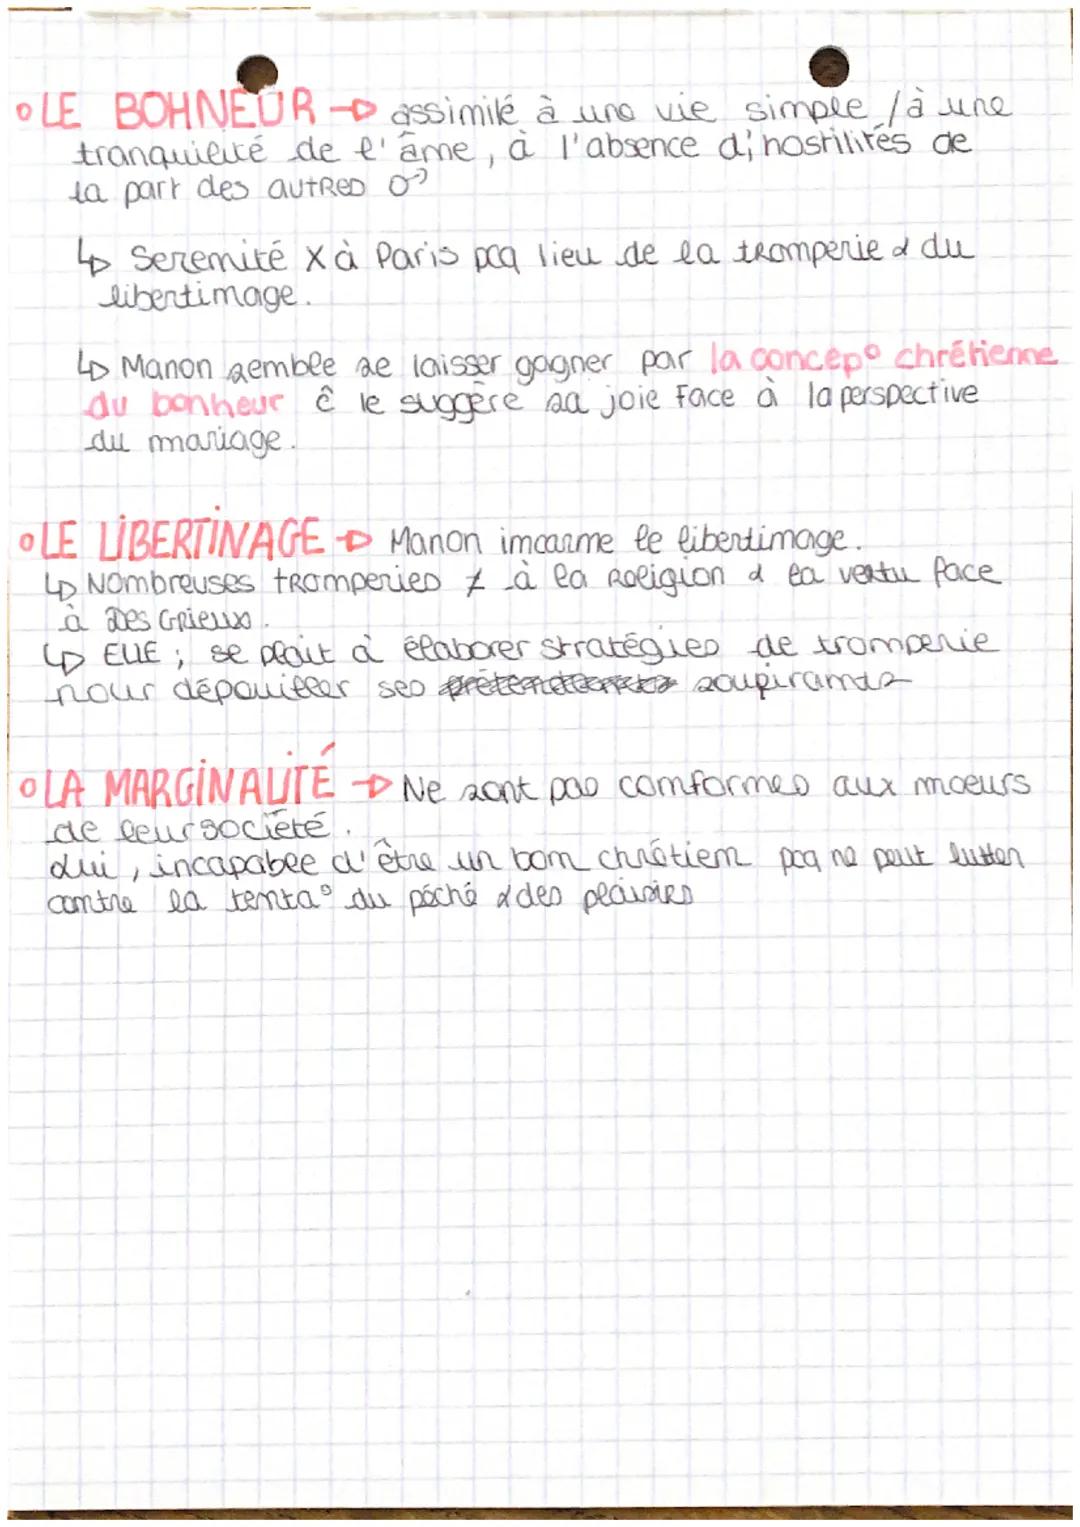 ° LE BOHNEUR → assimilé à une vie simple / à une
tranquilité de l'âme, à l'absence d'hostilités de
la part des autres
↳ Serenité X à Paris pcq lieu de la tromperie & du
libertinage.
↳ Manon semble se laisser gagner par la concep° chrétienne
du bonheur ê le suggère sa joie face à la perspective
du mariage.
° LE LIBERTINAGE → Manon incarne le libertinage.
↳ Nombreuses tromperies ≠ à la Religion & la vertu face
à Des Grieux.
↳ ELLE ; se plait à élaborer stratégies de tromperie
pour dépouiller ses soupirants
° LA MARGINALITÉ → Ne sont pas conformes aux moeurs
de leur société.
Lui, incapable d'être un bon chrétien pcq ne peut lutter
contre la tenta° du péché & des plaisirs